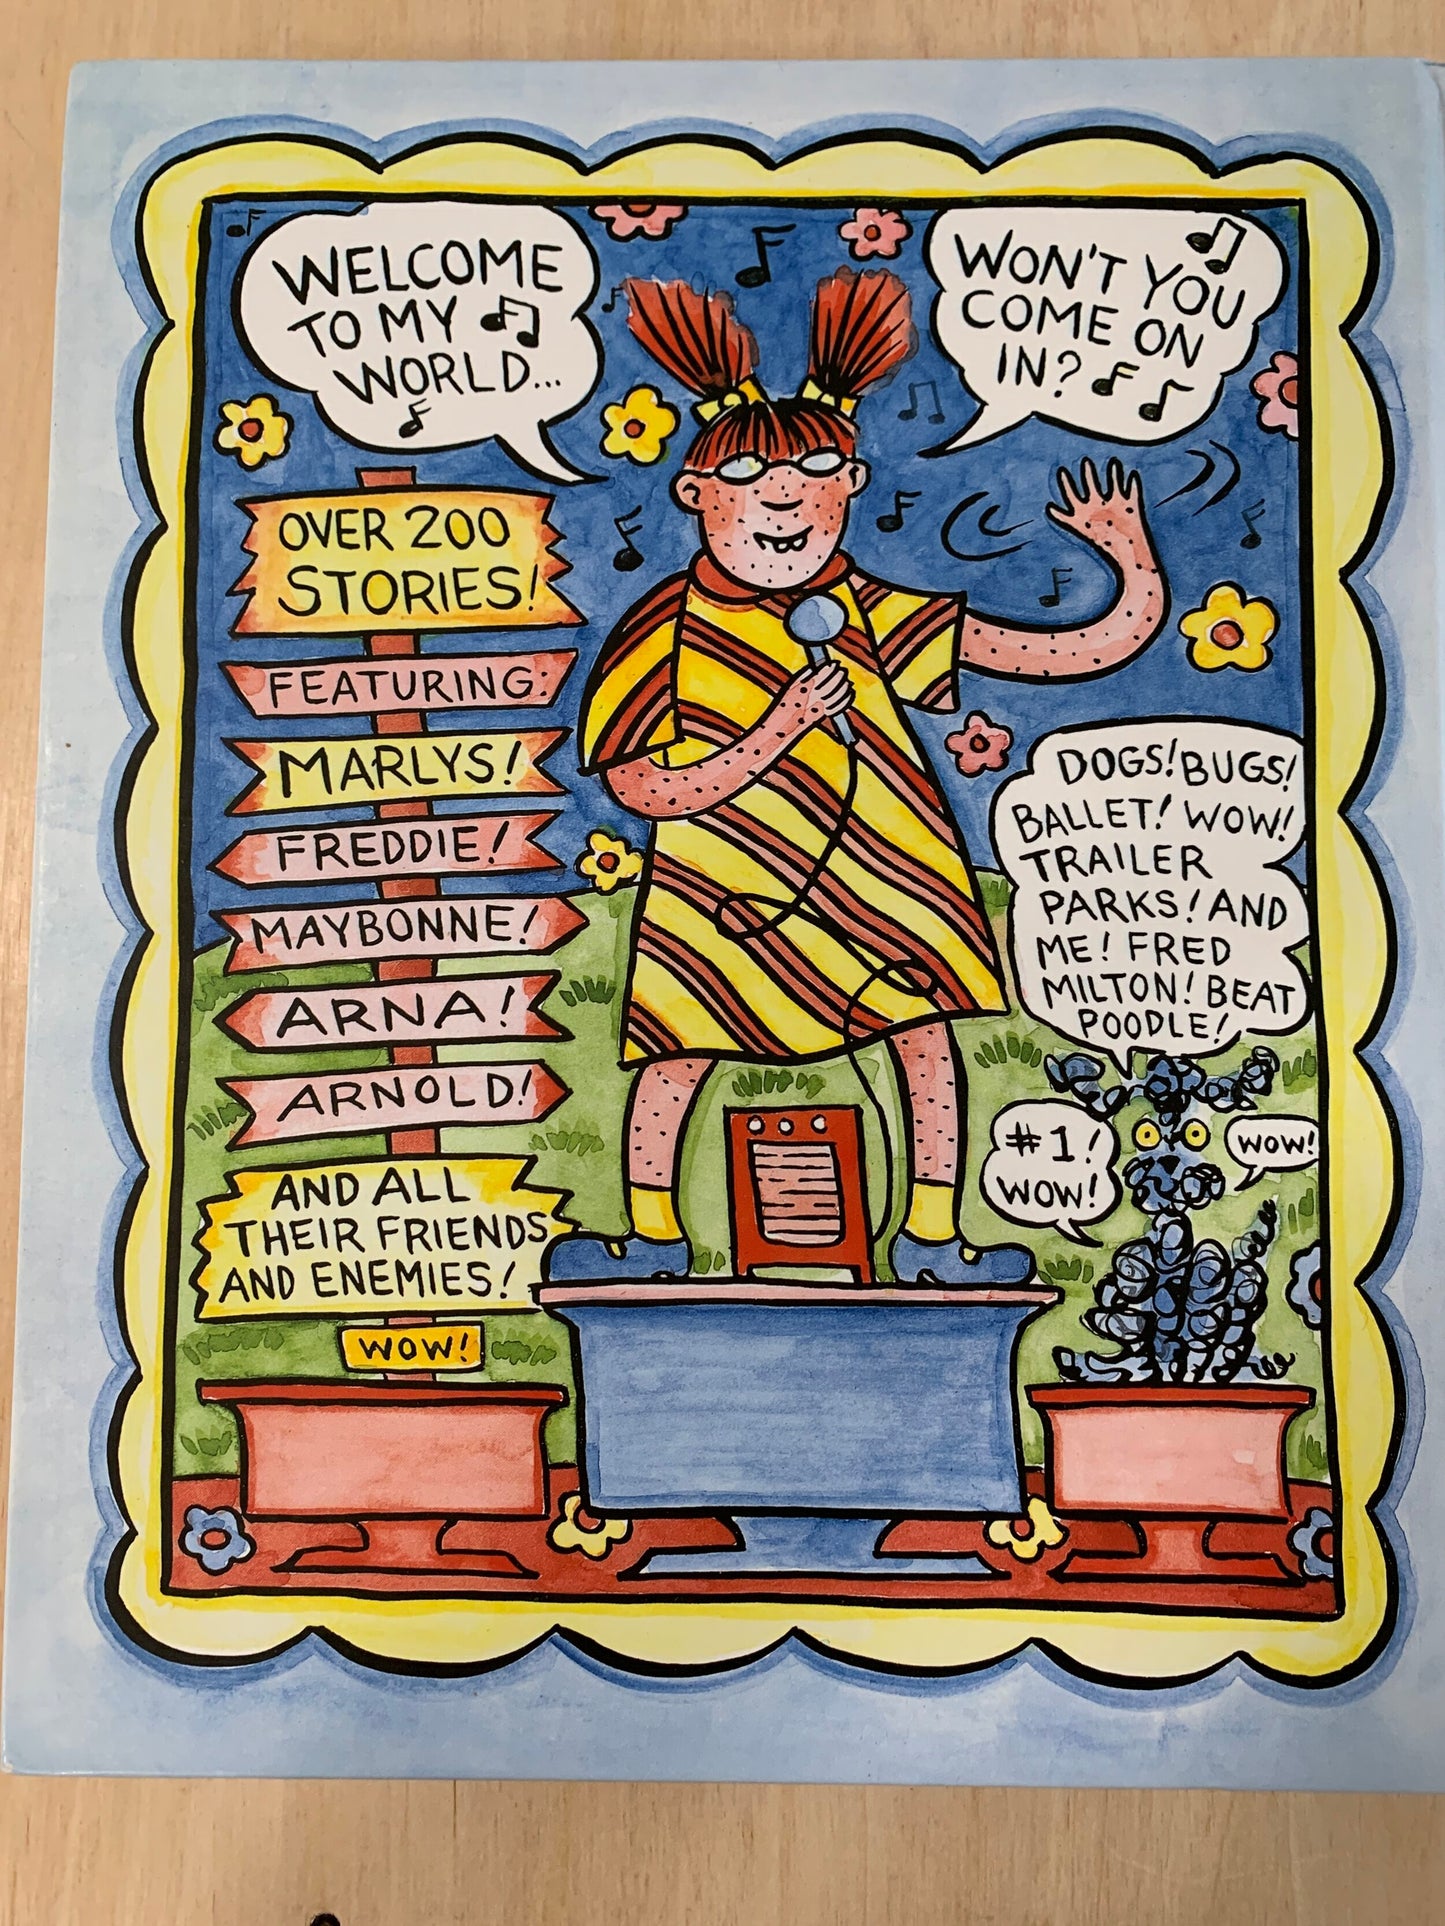 WELCOME
TO MY
WORLD...
WON'T YOU
COME ON
IN?
OVER 200
STORIES!
FEATURING:
MARLYS!
FREDDIE!
MAYBONNE!
ARNA!
ARNOLD!
AND ALL
THEIR FRIENDS
AND ENEMIES!
WOW!
DOGS! BUGS!
BALLET! WOW!
TRAILER
PARKS! AND
ME! FRED
MILTON! BEAT
POODLE!
#1!
WOW!
WOW!